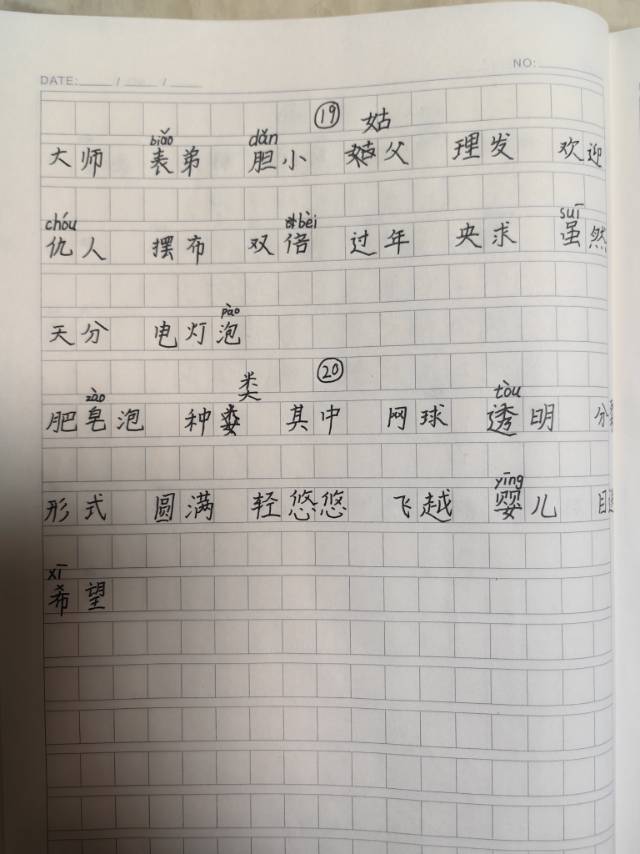 DATE: / /
NO:
⑲ 姑
biǎo dǎn
大师 表弟 胆小 父 理发 欢迎
chóu bèi suī
仇人 摆布 双倍 过年 央求 虽然
pào
天分 电灯泡
类 ⑳
zào tòu
肥皂泡 种 其中 网球 透明 分
yīng
形式 圆满 轻悠悠 飞越 婴儿 目
xī
希望